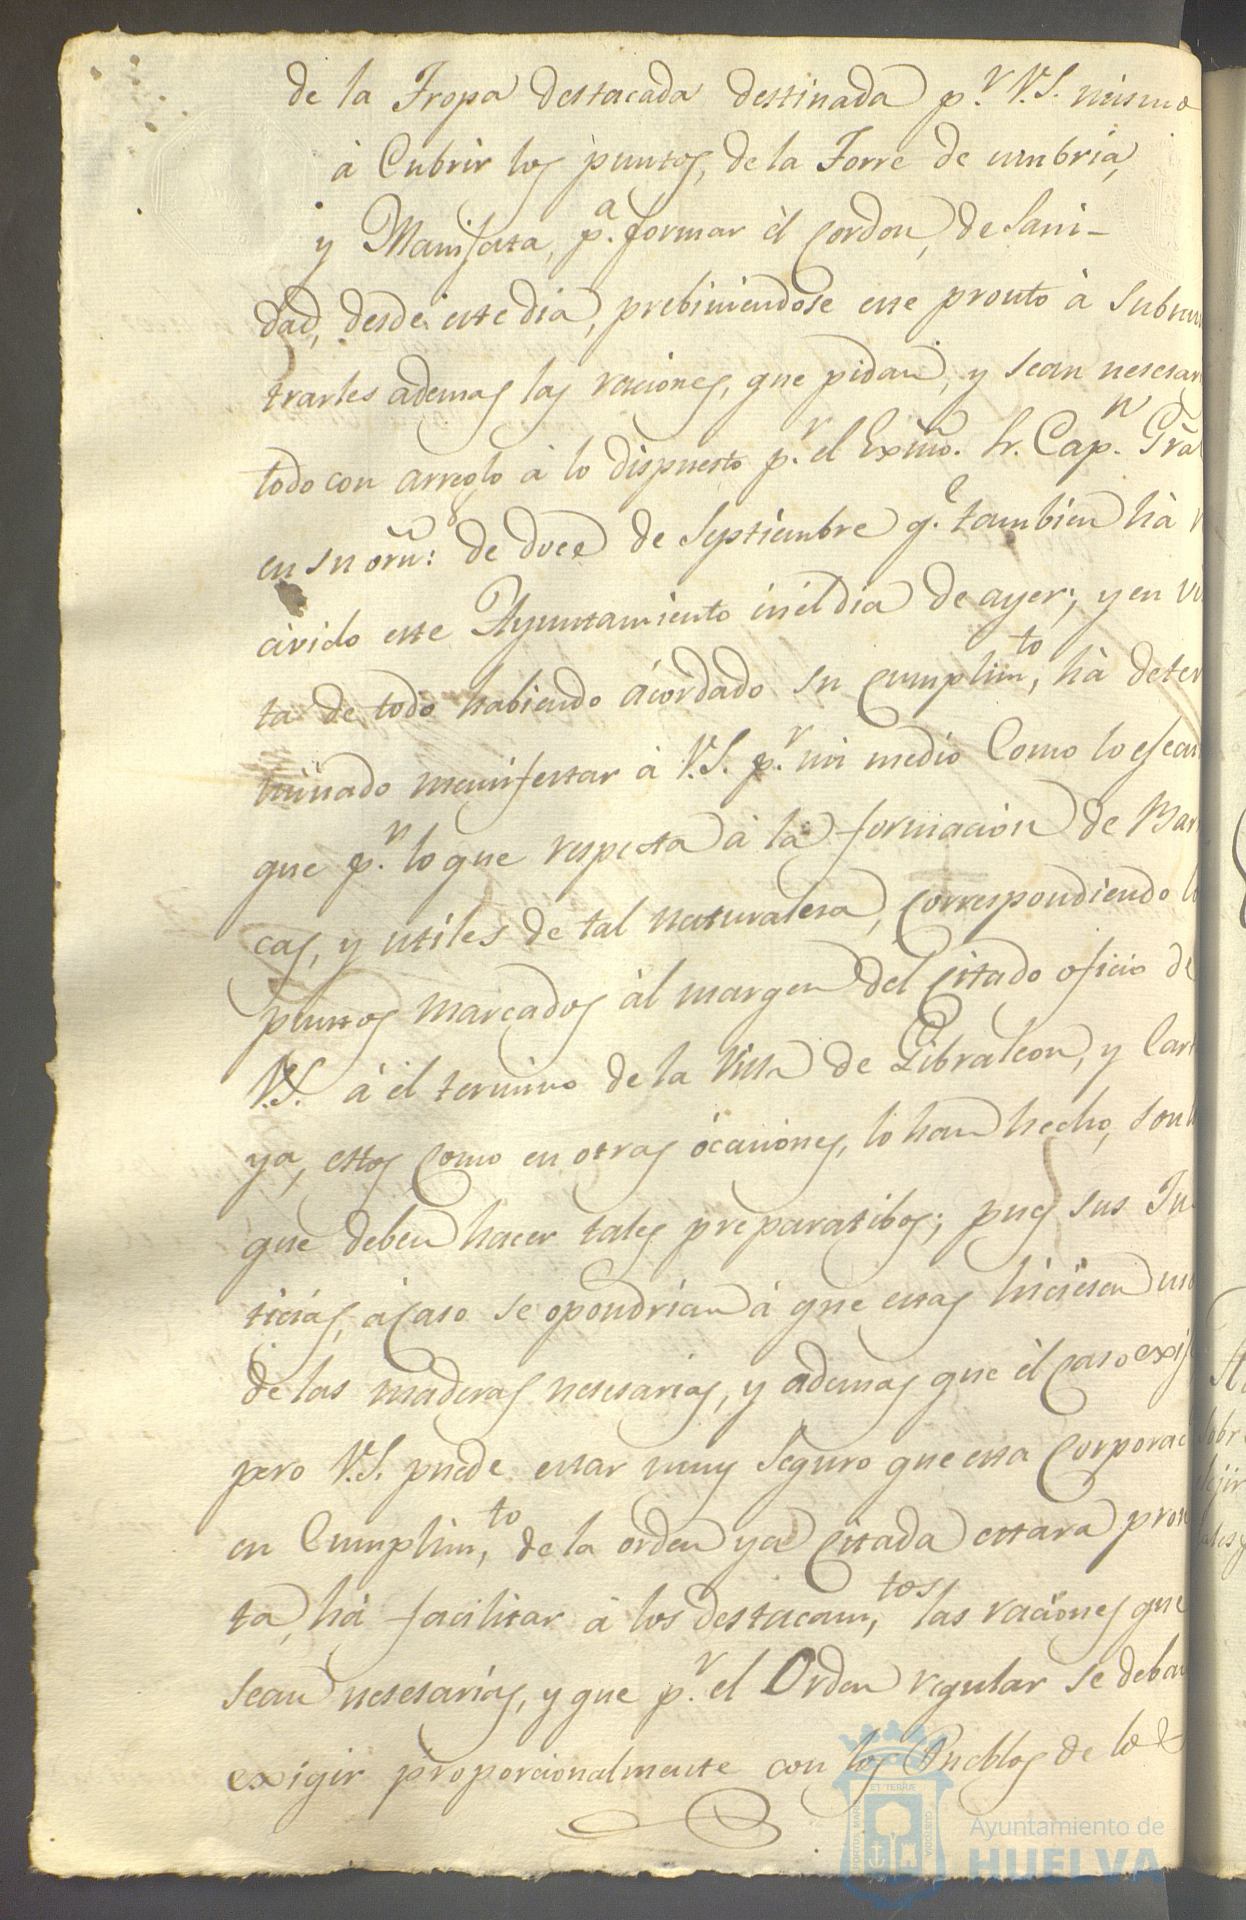 de la Tropa destacada destinada p.r V.S. mismo
à Cubrir los puntos, de la Torre de umbria,
y Manifata, p.a formar èl Cordon, de Sani-
dad, desde este dia, prebiniendose este pronto à Subm
trarles ademas las raciones, que pidan, y sean nesesar
todo con arreglo à lo dispuesto p.r el Exmô. Sr. Cap.n Grâl
en su orñ: de doce de Septiembre q.e tambien hà r
civido este Ayuntamiento en èl dia de ayer; y en vis
ta de todo habiendo àcordado su Cumplim.to, hà deter
minado manifestar à V.S. p.r mi medio Como lo ejecu
que p.r lo que respecta à la formacion de Bar
cas, y utiles de tal naturalesa, Correspondiendo l
puntos marcados àl margen del Citado oficio de
V.S. à èl termino de la Villa de Gibraleon, y Car
ya, estos Como en otras òcasiones, lo han hecho, son l
que deben hacer tales preparatibos; pues sus Ju
ticias, àCaso se opondrian à que estas hiciesen uso
de las maderas nesesarias, y ademas que èl Caso exis
pero V.S. puede estar muy Seguro que esta Corporac
en Cumplim.to, de la orden ya Citada estara pron
ta, hà facilitar à los destacam.tos, las raciones que
sean nesesarias, y que p.r el Orden regular se deban
exigir proporcionalmente con los Pueblos de lo
Ayuntamiento de
HUELVA
PORTUS MARIS
ET TERRÆ
CUSTODIA